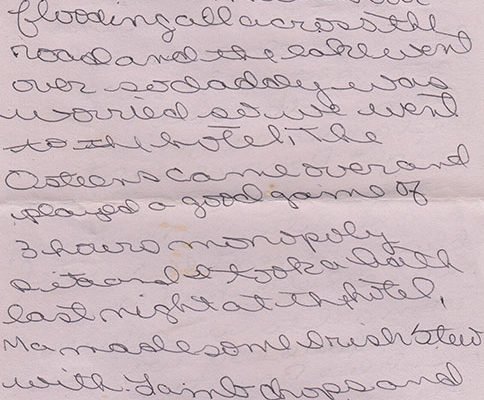 flooding all across the
road and the lake went
over so daddy was
worried so we went
to the hotel, The
Osteens came over and
played a good game of
3 hours monopoly
and I took a bath
last night at the hotel,
Ma made some Irish Stew
with Lamb chops and